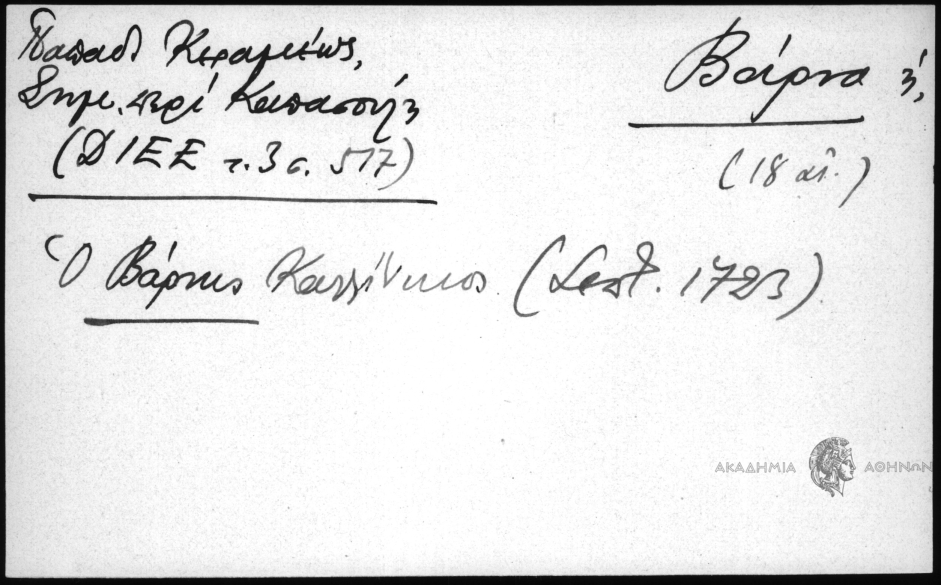 Παπαδ Κεραμέως,
Σημ. περί Καπασούλη
(ΔΙΕΕ τ. 3 σ. 517)
Βάρνα ἡ,
(18 αἰ.)
Ὁ Βάρνης Καλλίνικος (Σεπτ. 1723)
ΑΚΑΔΗΜΙΑ ΑΘΗΝΩΝ